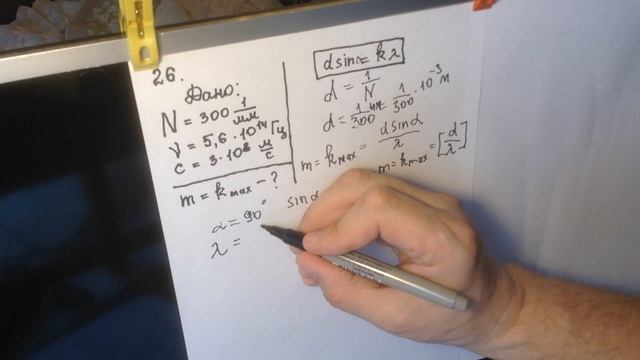 26.
Дано:
N = 300 1/мм
ν = 5,6 · 10¹⁴ Гц
c = 3 · 10⁸ м/с
m = k max - ?
α = 90°
λ =
d sin α = k λ
d = 1/N
d = 1/300 мм = 1/300 · 10⁻³ м
m = k max = d sin α / λ
m = k max = [d/λ]
sin α